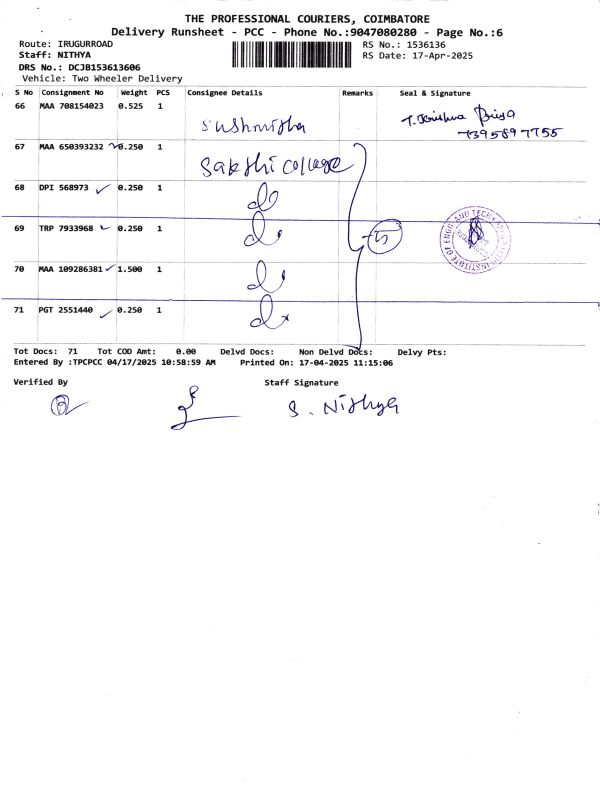 THE PROFESSIONAL COURIERS, COIMBATORE
Delivery Runsheet - PCC - Phone No.:9047080280 - Page No.:6
Route: IRUGURROAD RS No.: 1536136
Staff: NITHYA RS Date: 17-Apr-2025
DRS No.: DCJB153613606
Vehicle: Two Wheeler Delivery
S No Consignment No Weight PCS Consignee Details Remarks Seal & Signature
66 MAA 708154023 0.525 1 Sushmitha T. Krishna Priya
7395897755
67 MAA 650393232 0.250 1 Sakthi College
68 DPI 568973 0.250 1
69 TRP 7933968 0.250 1 5
70 MAA 109286381 1.500 1
71 PGT 2551440 0.250 1
Tot Docs: 71 Tot COD Amt: 0.00 Delvd Docs: Non Delvd Docs: Delvy Pts:
Entered By :TPCPCC 04/17/2025 10:58:59 AM Printed On: 17-04-2025 11:15:06
Verified By Staff Signature
S. Nithya